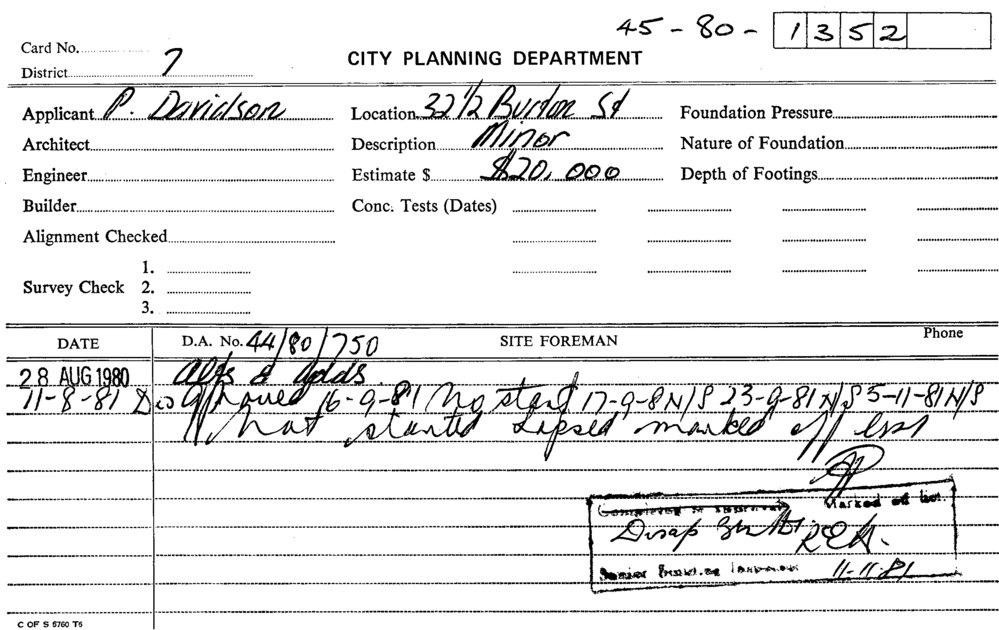 45-80-1352
Card No.
District 7
CITY PLANNING DEPARTMENT
Applicant P. Davidson Location 32 1/2 Burton St Foundation Pressure
Architect Description Minor Nature of Foundation
Engineer Estimate $ $20,000 Depth of Footings
Builder Conc. Tests (Dates)
Alignment Checked
1.
Survey Check 2.
3.
DATE D.A. No. 44/80/750 SITE FOREMAN Phone
28 AUG 1980 Alts & Adds.
11-8-81 Disapproved 16-9-81 No start 17-9-8 N/S 23-9-81 N/S 5-11-81 N/S
Not started Lapsed marked off
Marked off list.
Disap
11-11-81
C OF S 6760 T6